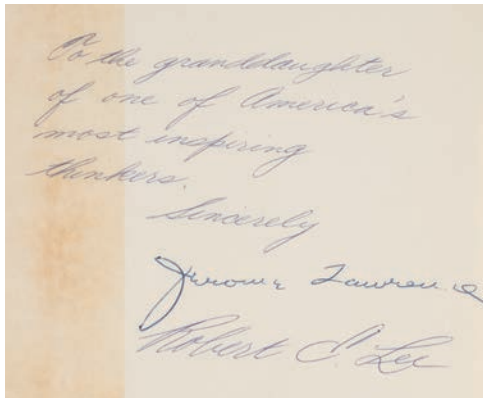 To the granddaughter
of one of America's
most inspiring
thinkers.
Sincerely
Jerome Lawrence
Robert E. Lee